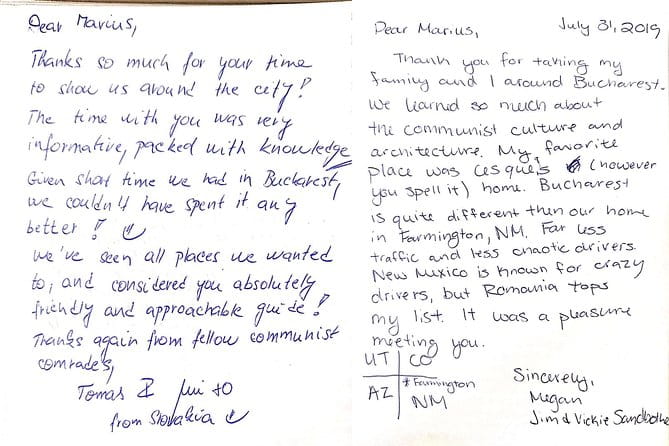 Dear Marius,
Thanks so much for your time
to show us around the city!
The time with you was very
informative, packed with knowledge
Given short time we had in Bucharest,
we couldn't have spent it any
better!
We've seen all places we wanted
to, and considered you absolutely
friendly and approachable guide!
Thanks again from fellow communist
comrades,
Tomas
from Slovakia
Dear Marius,
July 31, 2019
Thank you for taking my
family and I around Bucharest.
We learned so much about
the communist culture and
architecture. My favorite
place was Cesque's (however
you spell it) home. Bucharest
is quite different then our home
in Farmington, NM. Far less
traffic and less chaotic drivers.
New Mexico is known for crazy
drivers, but Romania tops
my list. It was a pleasure
meeting you.
UT CO
AZ * Farmington
NM
Sincerely,
Megan
Jim & Vickie